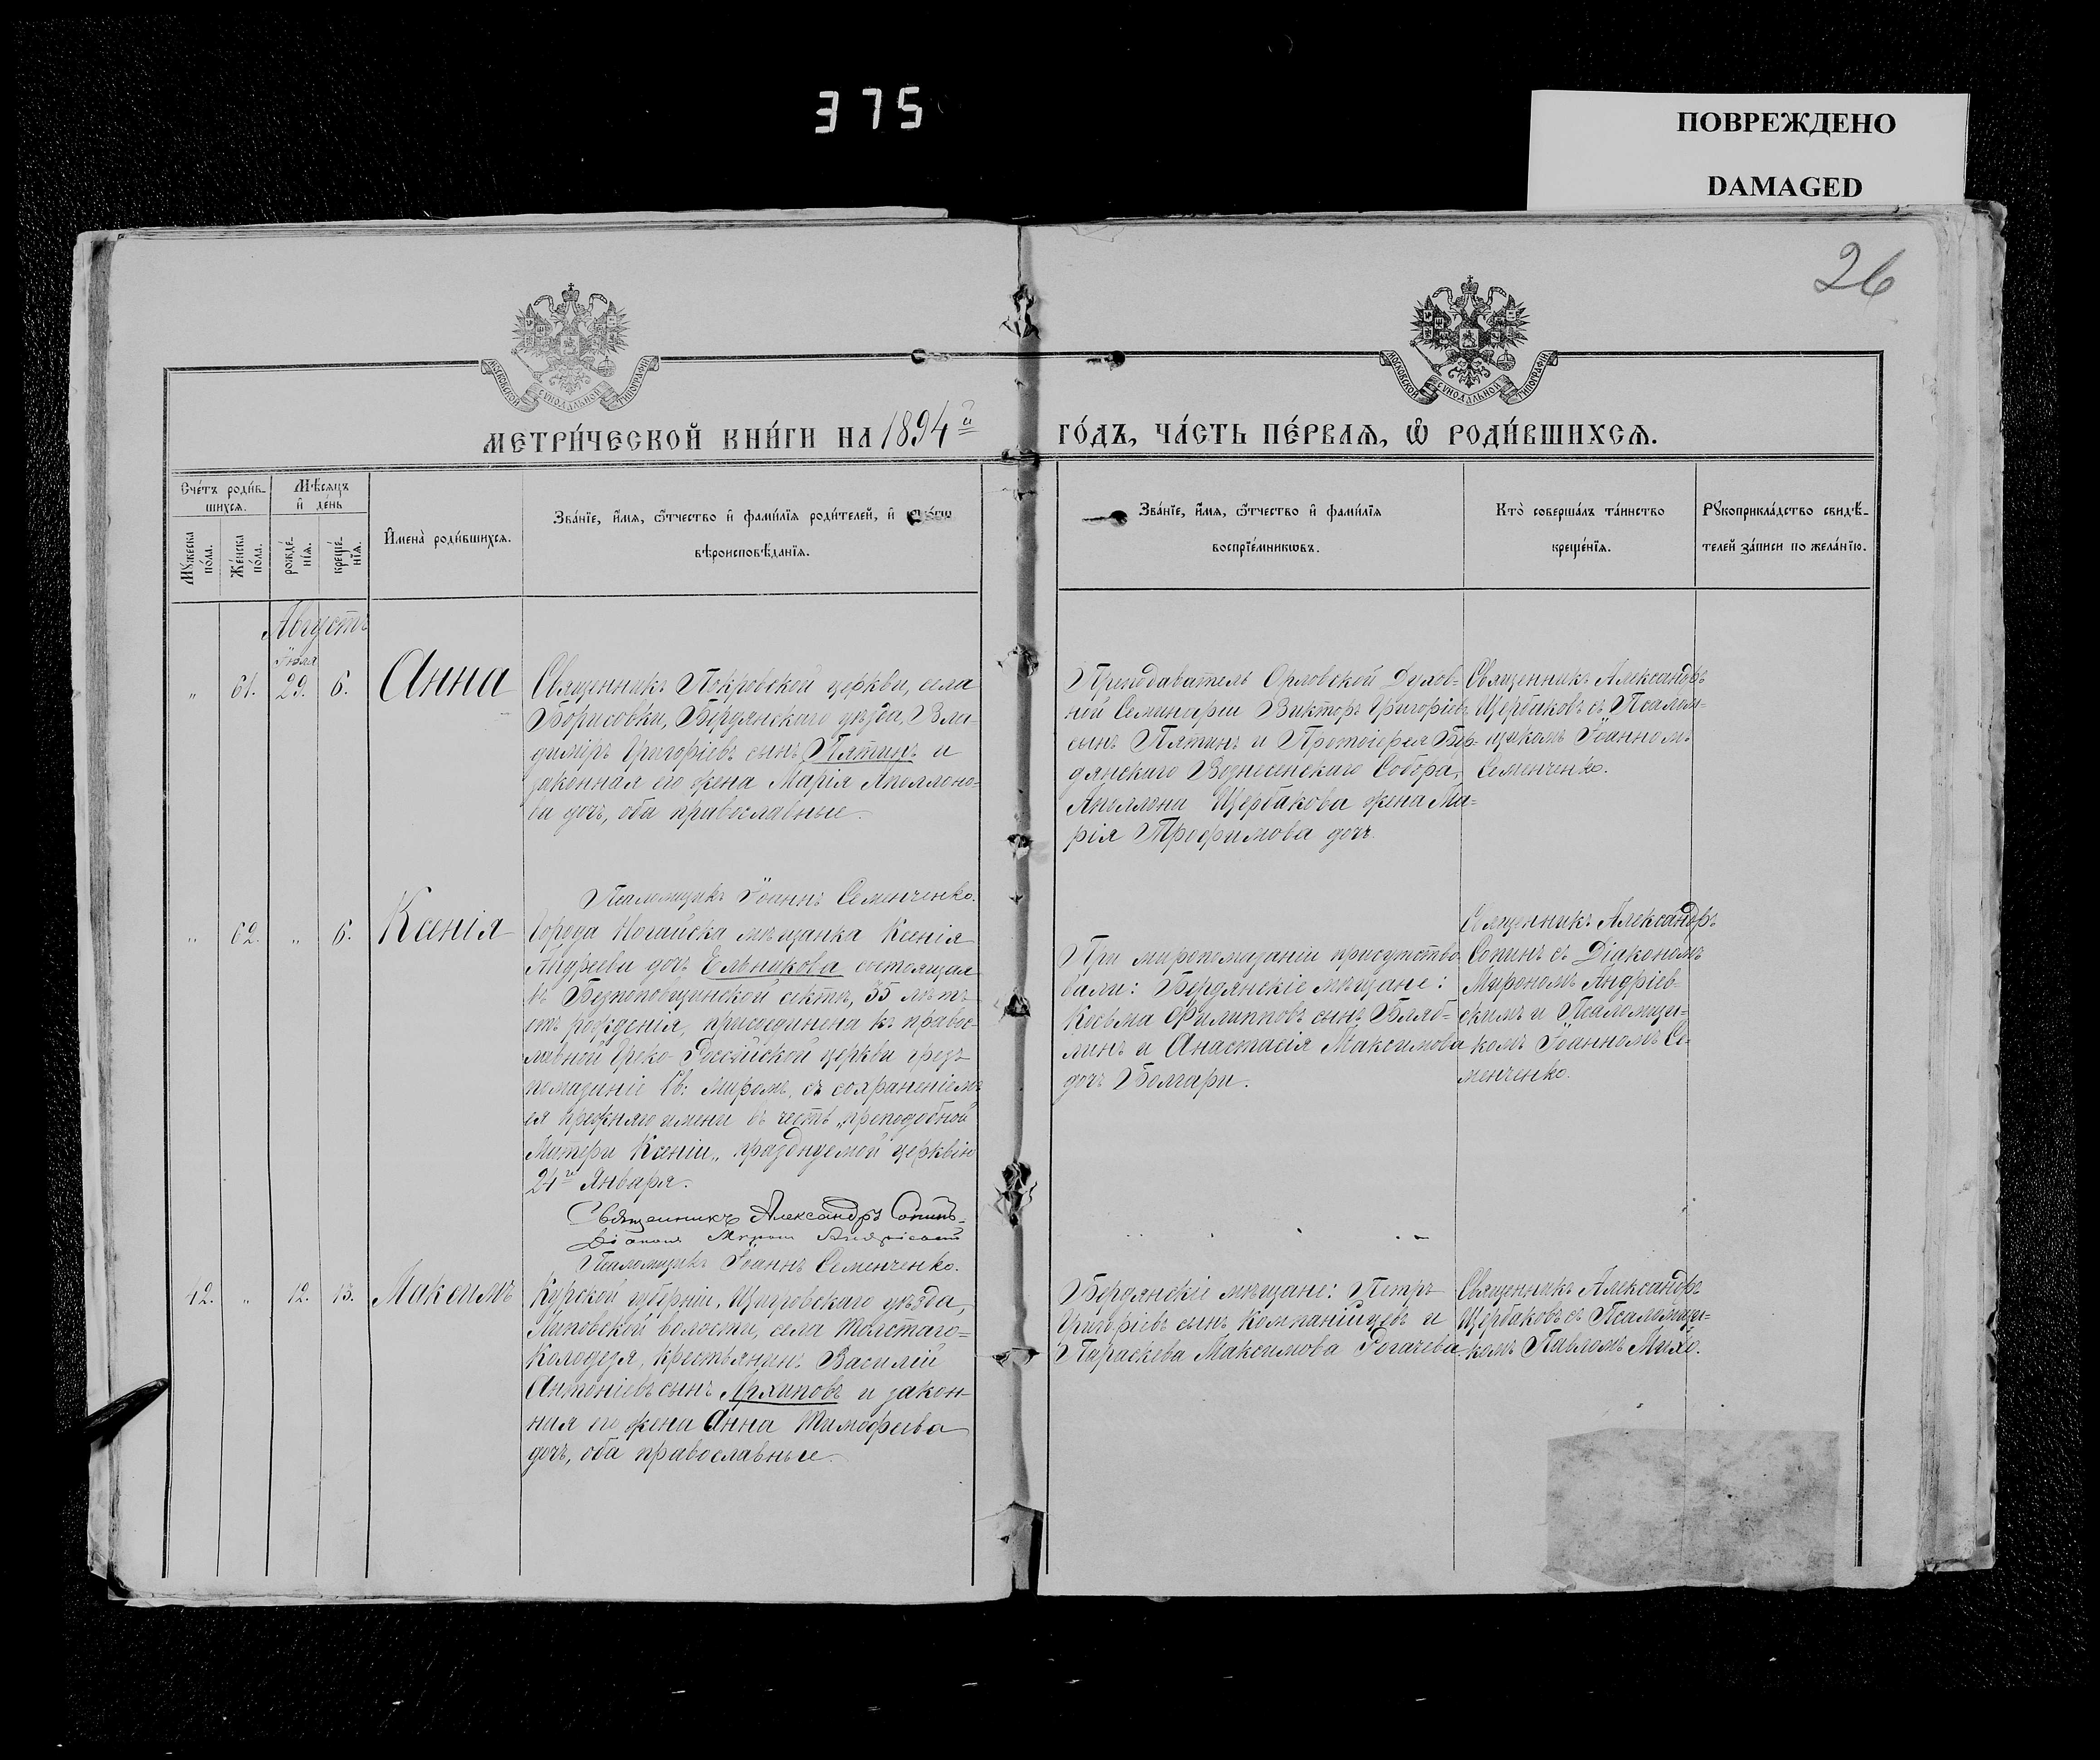 375
ПОВРЕЖДЕНО
DAMAGED
26
МОСКОВСКОЙ СѴНОДАЛЬНОЙ ТИПОГРАФІИ
МОСКОВСКОЙ СѴНОДАЛЬНОЙ ТИПОГРАФІИ
МЕТРИ́ЧЕСКОЙ КНИ́ГИ НА 1894й
ГО́ДЪ, ЧА́СТЬ ПЕ́РВАѦ, Ѽ РОДИ́ВШИХСѦ.
Сче́тъ роди́в-
шихсѧ.
Мѣ́сѧцъ
и҆ де́нь
Мꙋ́жеска по́ла.
Же́нска по́ла.
рожде́-
нїѧ.
креще́-
нїѧ.
И҆мена̀ роди́вшихсѧ.
Зва́нїе, и҆́мѧ, ѻ҆́тчество и҆ фами́лїѧ роди́телей, и҆
вѣроисповѣ́данїѧ.
Зва́нїе, и҆́мѧ, ѻ҆́тчество и҆ фами́лїѧ
воспрїе́мникѡвъ.
Кто̀ соверша́лъ та́инство
креще́нїѧ.
Рꙋкоприкла́дство свидѣ́-
телей за́писи по жела́нїю.
Августъ
Іюля
" 61. 29. 6. Анна
Священникъ Покровской церкви, села
Борисовки, Бердянскаго уѣзда, Вла-
диміръ Григоріевъ сынъ Пятинъ и
законная его жена Марія Аполлоно-
ва дочь, оба православные.
Преподаватель Орловской Духов-
ной Семинаріи Викторъ Григоріевъ
сынъ Пятинъ и Протоіерея Бер-
дянскаго Вознесенскаго Собора,
Аполлона Щербакова жена Ма-
рія Трофимова дочь.
Священникъ Александръ
Щербаковъ съ Псалом-
щикомъ Іоанномъ
Семенченко.
Псаломщикъ Іоаннъ Семенченко.
" 62. " 6. Ксенія
Города Ногайска мѣщанка Ксенія
Андреева дочь Ельникова состоящая
въ Безпоповщинской сектѣ, 35 лѣтъ
отъ рожденія, присоединена къ правос-
лавной Греко-Россійской церкви чрезъ
помазаніе Св: Миромъ, съ сохраненіемъ
ея прежняго имени въ честь „преподобной
Матери Ксеніи„ празднуемой церквію
24го Января.
Священникъ Александръ Сопинъ
Діаконъ Миронъ Андріевскій
Псаломщикъ Іоаннъ Семенченко.
При миропомазаніи присутство-
вали: Бердянскіе мѣщане:
Косьма Филипповъ сынъ
и Анастасія Максимова
дочь Болгари.
Священникъ Александръ
Сопинъ съ Діакономъ
Мирономъ Андріев-
скимъ и Псаломщи-
комъ Іоанномъ Се-
менченко.
12. " 12. 13. Максимъ
Курской губерніи, Щигровскаго уѣзда,
Липовской волости, села Толстаго-
Колодезя, крестьянинъ Василій
Антоніевъ сынъ Архиповъ и закон-
ная его жена Анна Тимофеева
дочь, оба православные.
Бердянскіе мѣщане: Петръ
Григоріевъ сынъ Компанійцевъ и
Параскева Максимова Рогачева.
Священникъ Александръ
Щербаковъ съ Псаломщи-
комъ Павломъ Михо.